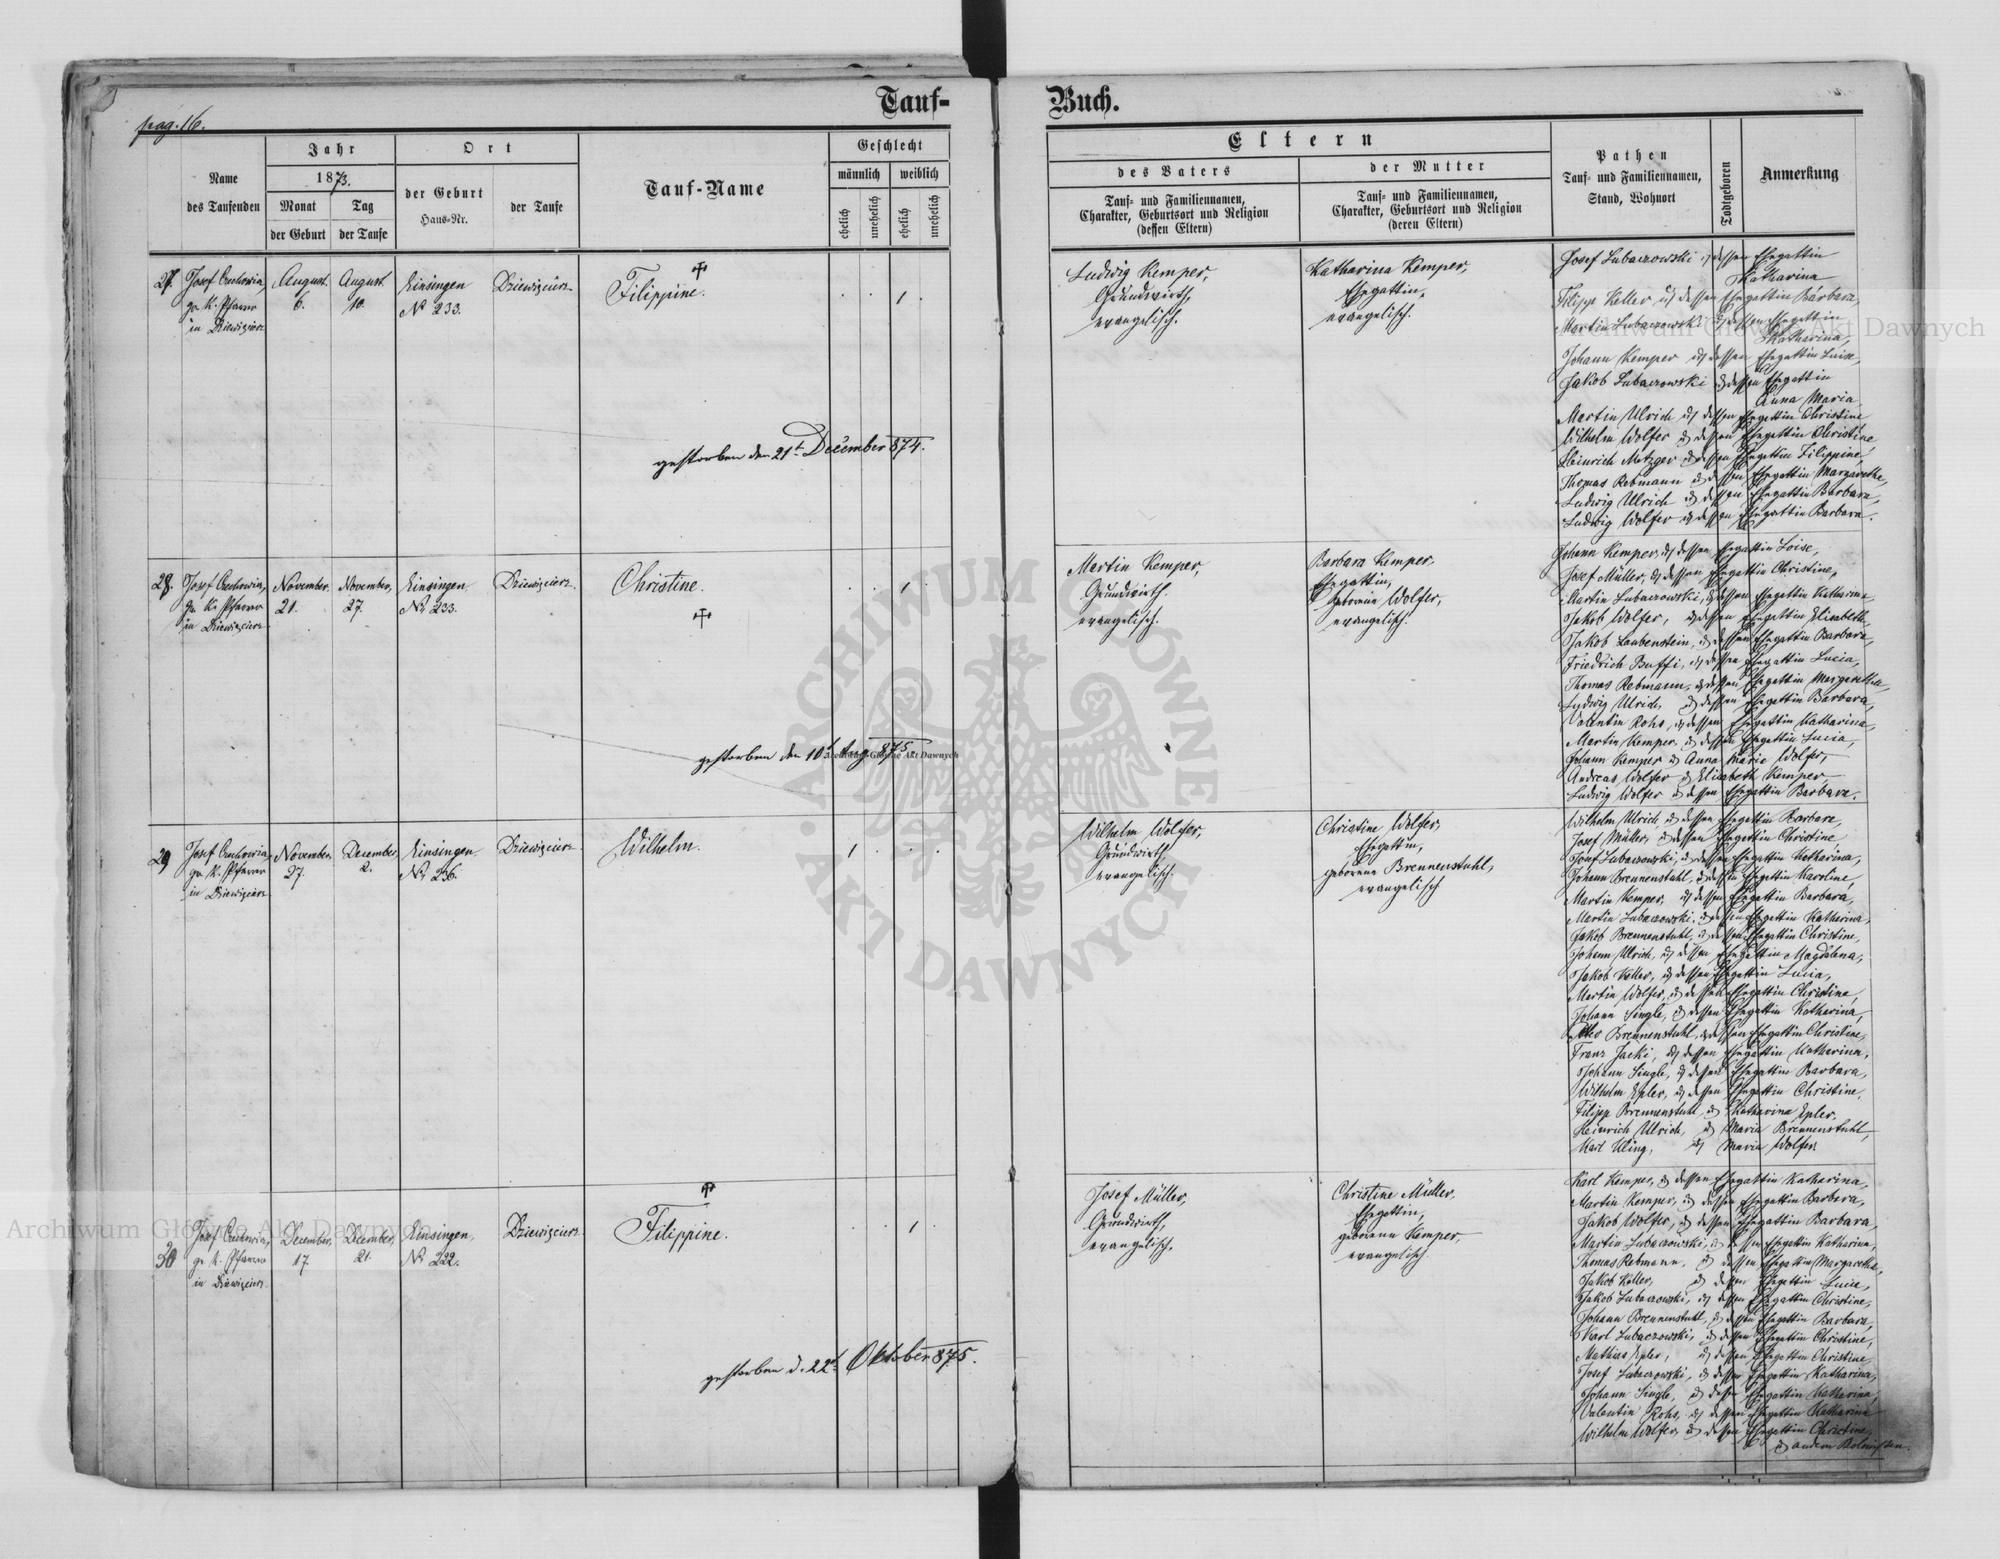 Tauf-Buch.
pag. 16.
Name
des Taufenden
Jahr
1873.
Monat
der Geburt
Tag
der Taufe
Ort
der Geburt
Haus-Nr.
der Taufe
Tauf-Name
Geschlecht
männlich
weiblich
ehelich
unehelich
ehelich
unehelich
Eltern
des Vaters
Tauf- und Familiennamen,
Charakter, Geburtsort und Religion
(dessen Eltern)
der Mutter
Tauf- und Familiennamen,
Charakter, Geburtsort und Religion
(deren Eltern)
Pathen
Tauf- und Familiennamen,
Stand, Wohnort
Todtgeboren
Anmerkung
27.
Josef
gr. K. Pfarrer
in Dziewięcierz
August.
6.
August.
10.
Einsingen
No 233.
Dziewięcierz
Filippine.
1
gestorben den 21t December 874.
Ludwig Kemper,
Grundwirth,
evangelisch.
Katharina Kemper,
Ehegattin,
evangelisch.
Josef Lubaczowski u. dessen Ehegattin
Katharina
Filipp Keller u. dessen Ehegattin Barbara,
Martin Lubaczowski u. dessen Ehegattin
Katharina,
Johann Kemper u. dessen Ehegattin Luise,
Jakob Lubaczowski u. dessen Ehegattin
Anna Maria,
Martin Ulrich u. dessen Ehegattin Christine
Wilhelm Wolfer u. dessen Ehegattin Christine
Heinrich Metzger u. dessen Ehegattin Filippine,
Thomas Rebmann u. dessen Ehegattin Margarethe,
Ludwig Ulrich u. dessen Ehegattin Barbara,
Ludwig Wolfer u. dessen Ehegattin Barbara.
28.
Josef
gr. K. Pfarrer
in Dziewięcierz
November.
21.
November,
27.
Einsingen
No 233.
Dziewięcierz.
Christine.
1
gestorben den 10t Aug 875.
Martin Kemper,
Grundwirth.
evangelisch.
Barbara Kemper,
Ehegattin,
geborene Wolfer,
evangelisch.
Johann Kemper, u. dessen Ehegattin Loise,
Josef Müller, u. dessen Ehegattin Christine,
Martin Lubaczowski, u. dessen Ehegattin Katharina,
Jakob Wolfer, u. dessen Ehegattin Elisabeth,
Jakob Laubenstein, u. dessen Ehegattin Barbara,
Friedrich Buffi, u. dessen Ehegattin Lucia,
Thomas Rebmann, u. dessen Ehegattin Margarethe,
Ludwig Ulrich, u. dessen Ehegattin Barbara,
Valentin Rohs, u. dessen Ehegattin Katharina,
Martin Kemper, u. dessen Ehegattin Lucia,
Johann Kemper u. Anna Marie Wolfer,
Andreas Wolfer u. Elisabeth Kemper,
Ludwig Wolfer u. dessen Ehegattin Barbara.
29
Josef
gr. K. Pfarrer
in Dziewięcierz
November,
27.
December,
2.
Einsingen.
No 236.
Dziewięcierz
Wilhelm.
1
Wilhelm Wolfer,
Grundwirth,
evangelisch.
Christine Wolfer,
Ehegattin,
geborene Brennenstuhl,
evangelisch
Wilhelm Ulrich u. dessen Ehegattin Barbara,
Josef Müller, u. dessen Ehegattin Christine
Josef Lubaczowski, u. dessen Ehegattin Katharina,
Johann Brennenstuhl, u. dessen Ehegattin Karoline,
Martin Kemper, u. dessen Ehegattin Barbara,
Martin Lubaczowski, u. dessen Ehegattin Katharina,
Jakob Brennenstuhl, u. dessen Ehegattin Christine,
Johann Ulrich, u. dessen Ehegattin Magdalena,
Jakob Keller, u. dessen Ehegattin Lucia,
Martin Wolfer, u. dessen Ehegattin Christina,
Johann Single, u. dessen Ehegattin Katharina,
Brennenstuhl, u. dessen Ehegattin Christine,
Franz Jacki, u. dessen Ehegattin Katharina,
Johann Single, u. dessen Ehegattin Barbara,
Wilhelm Epler, u. dessen Ehegattin Christine,
Filipp Brennenstuhl, u. Katharina Epler,
Heinrich Ulrich, u. Maria Brennenstuhl,
Karl Kling, u. Maria Wolfer.
30
Josef
gr. K. Pfarrer
in Dziewięcierz.
December,
17.
December,
21.
Einsingen,
No 222.
Dziewięcierz
Filippine.
1
gestorben d. 22t Oktober 875.
Josef Müller,
Grundwirth,
evangelisch.
Christine Müller,
Ehegattin,
geborene Kemper,
evangelisch.
Karl Kemper, u. dessen Ehegattin Katharina,
Martin Kemper, u. dessen Ehegattin Barbara,
Jakob Wolfer, u. dessen Ehegattin Barbara,
Martin Lubaczowski, u. dessen Ehegattin Katharina,
Thomas Rebmann, u. dessen Ehegattin Margarethe,
Jakob Keller, u. dessen Ehegattin Lucia,
Jakob Lubaczowski, u. dessen Ehegattin Christine,
Johann Brennenstuhl, u. dessen Ehegattin Barbara,
Karl Lubaczowski, u. dessen Ehegattin Christine,
Mathias Epler, u. dessen Ehegattin Christine
Josef Lubaczowski, u. dessen Ehegattin Katharina,
Johann Single, u. dessen Ehegattin Katharina,
Valentin Rohs, u. dessen Ehegattin Katharina
Wilhelm Wolfer, u. dessen Ehegattin Christine,
u. andern Kolonisten.
ARCHIWUM GŁÓWNE AKT DAWNYCH
Archiwum Główne Akt Dawnych
Archiwum Główne Akt Dawnych
Archiwum Główne Akt Dawnych